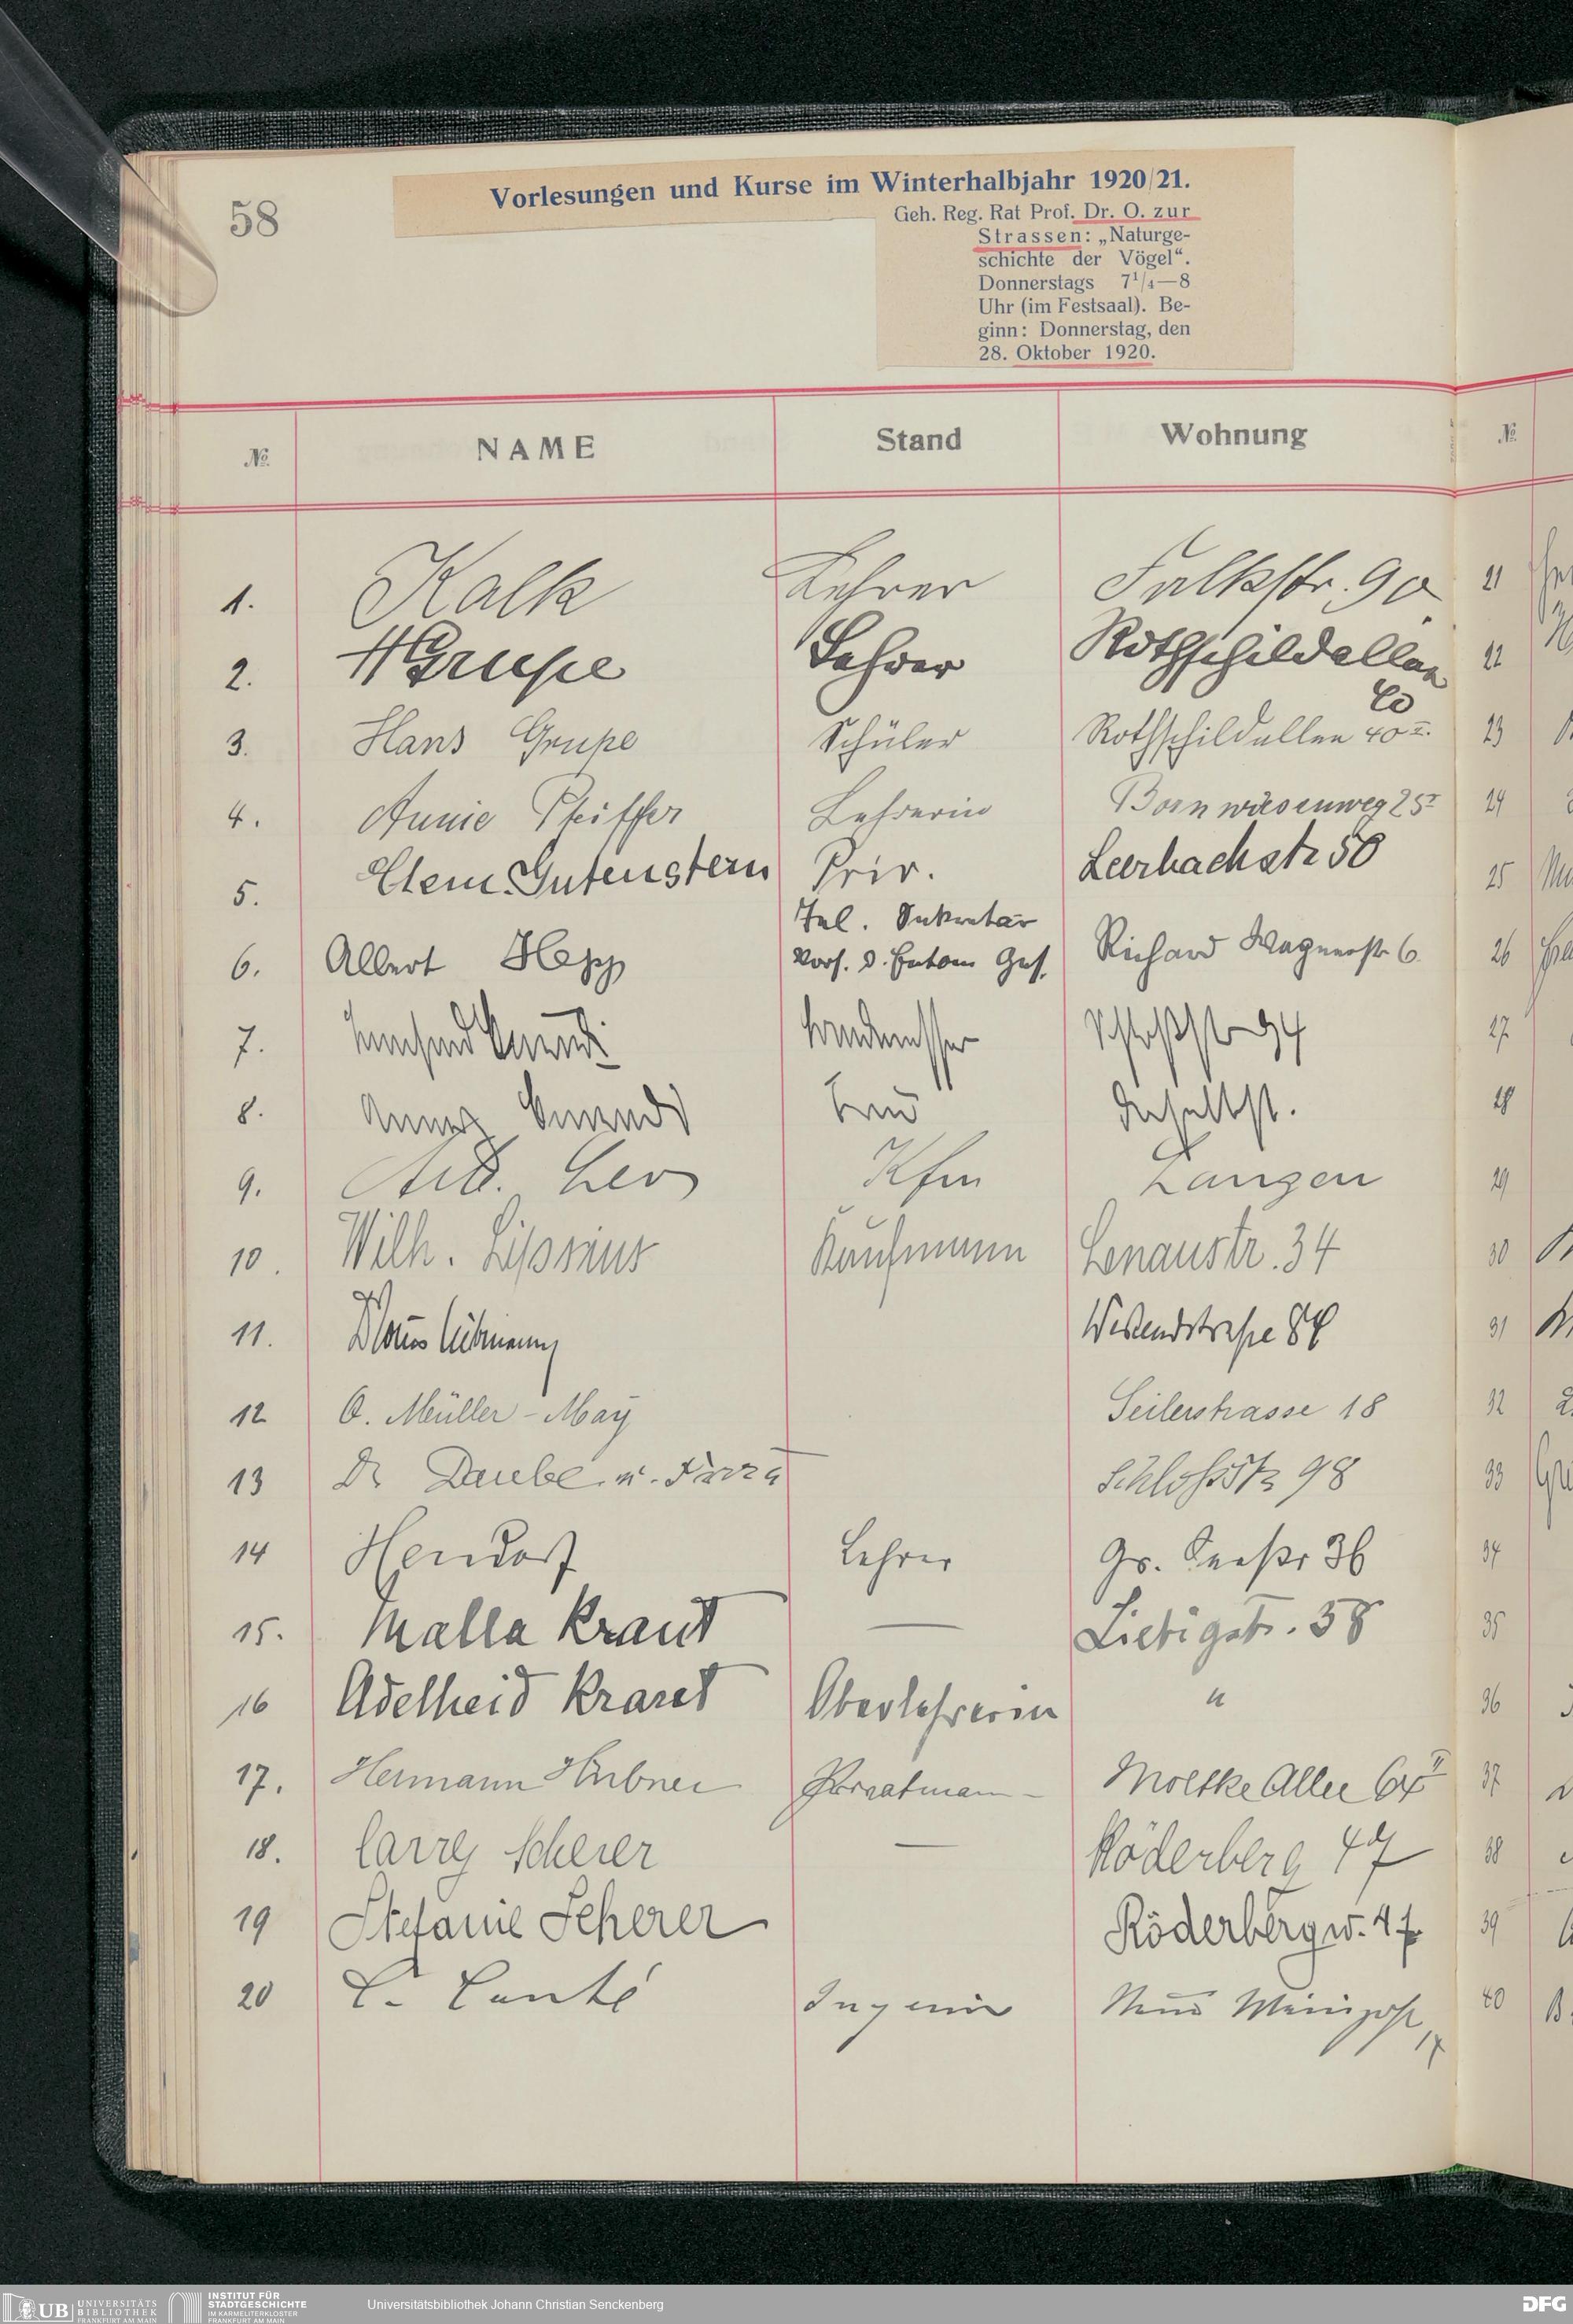 58
Vorlesungen und Kurse im Winterhalbjahr 1920/21.
Geh. Reg. Rat Prof. Dr. O. zur
Strassen: „Naturge-
schichte der Vögel“.
Donnerstags 7¹/₄—8
Uhr (im Festsaal). Be-
ginn: Donnerstag, den
28. Oktober 1920.
№ NAME Stand Wohnung №
1. Kalk Lehrer Falkstr. 90 21
2. H Grupe Lehrer Rothschildallee 22
40
3. Hans Grupe Schüler Rothschildallee 40 II. 23
4. Annie Pfeiffer Lehrerin Bornwiesenweg 25 I 24
5. Clem. Gutenstern Priv. Leerbachstr 50 25
Tel. Sekretär
6. Albert Hepp Vors. d. Entom Ges. Richard Wagnerstr 6. 26
7. Schloßstr 94 27
8. Anna Frau daselbst. 28
9. Kfm Langen 29
10. Wilh. Kaufmann Lenaustr. 34 30
11. 31
12 O. Müller-May Seilerstrasse 18 32
13 Dr Daube u. Schlossstr 98 33
14 Lehrer Gr. 36 34
15. Malla Kraut — Liebigstr. 58 35
16 Adelheid Kraut Oberlehrerin " 36
17. Hermann Hübner Privatmann Moltke Allee 64 II 37
18. Carry Scherer — Röderberg 47 38
19 Stefanie Scherer Röderbergw. 47 39
20 Neue Mainzerstr 40
17
UB UNIVERSITÄTS
BIBLIOTHEK
FRANKFURT AM MAIN
INSTITUT FÜR
STADTGESCHICHTE
IM KARMELITERKLOSTER
FRANKFURT AM MAIN
Universitätsbibliothek Johann Christian Senckenberg
DFG